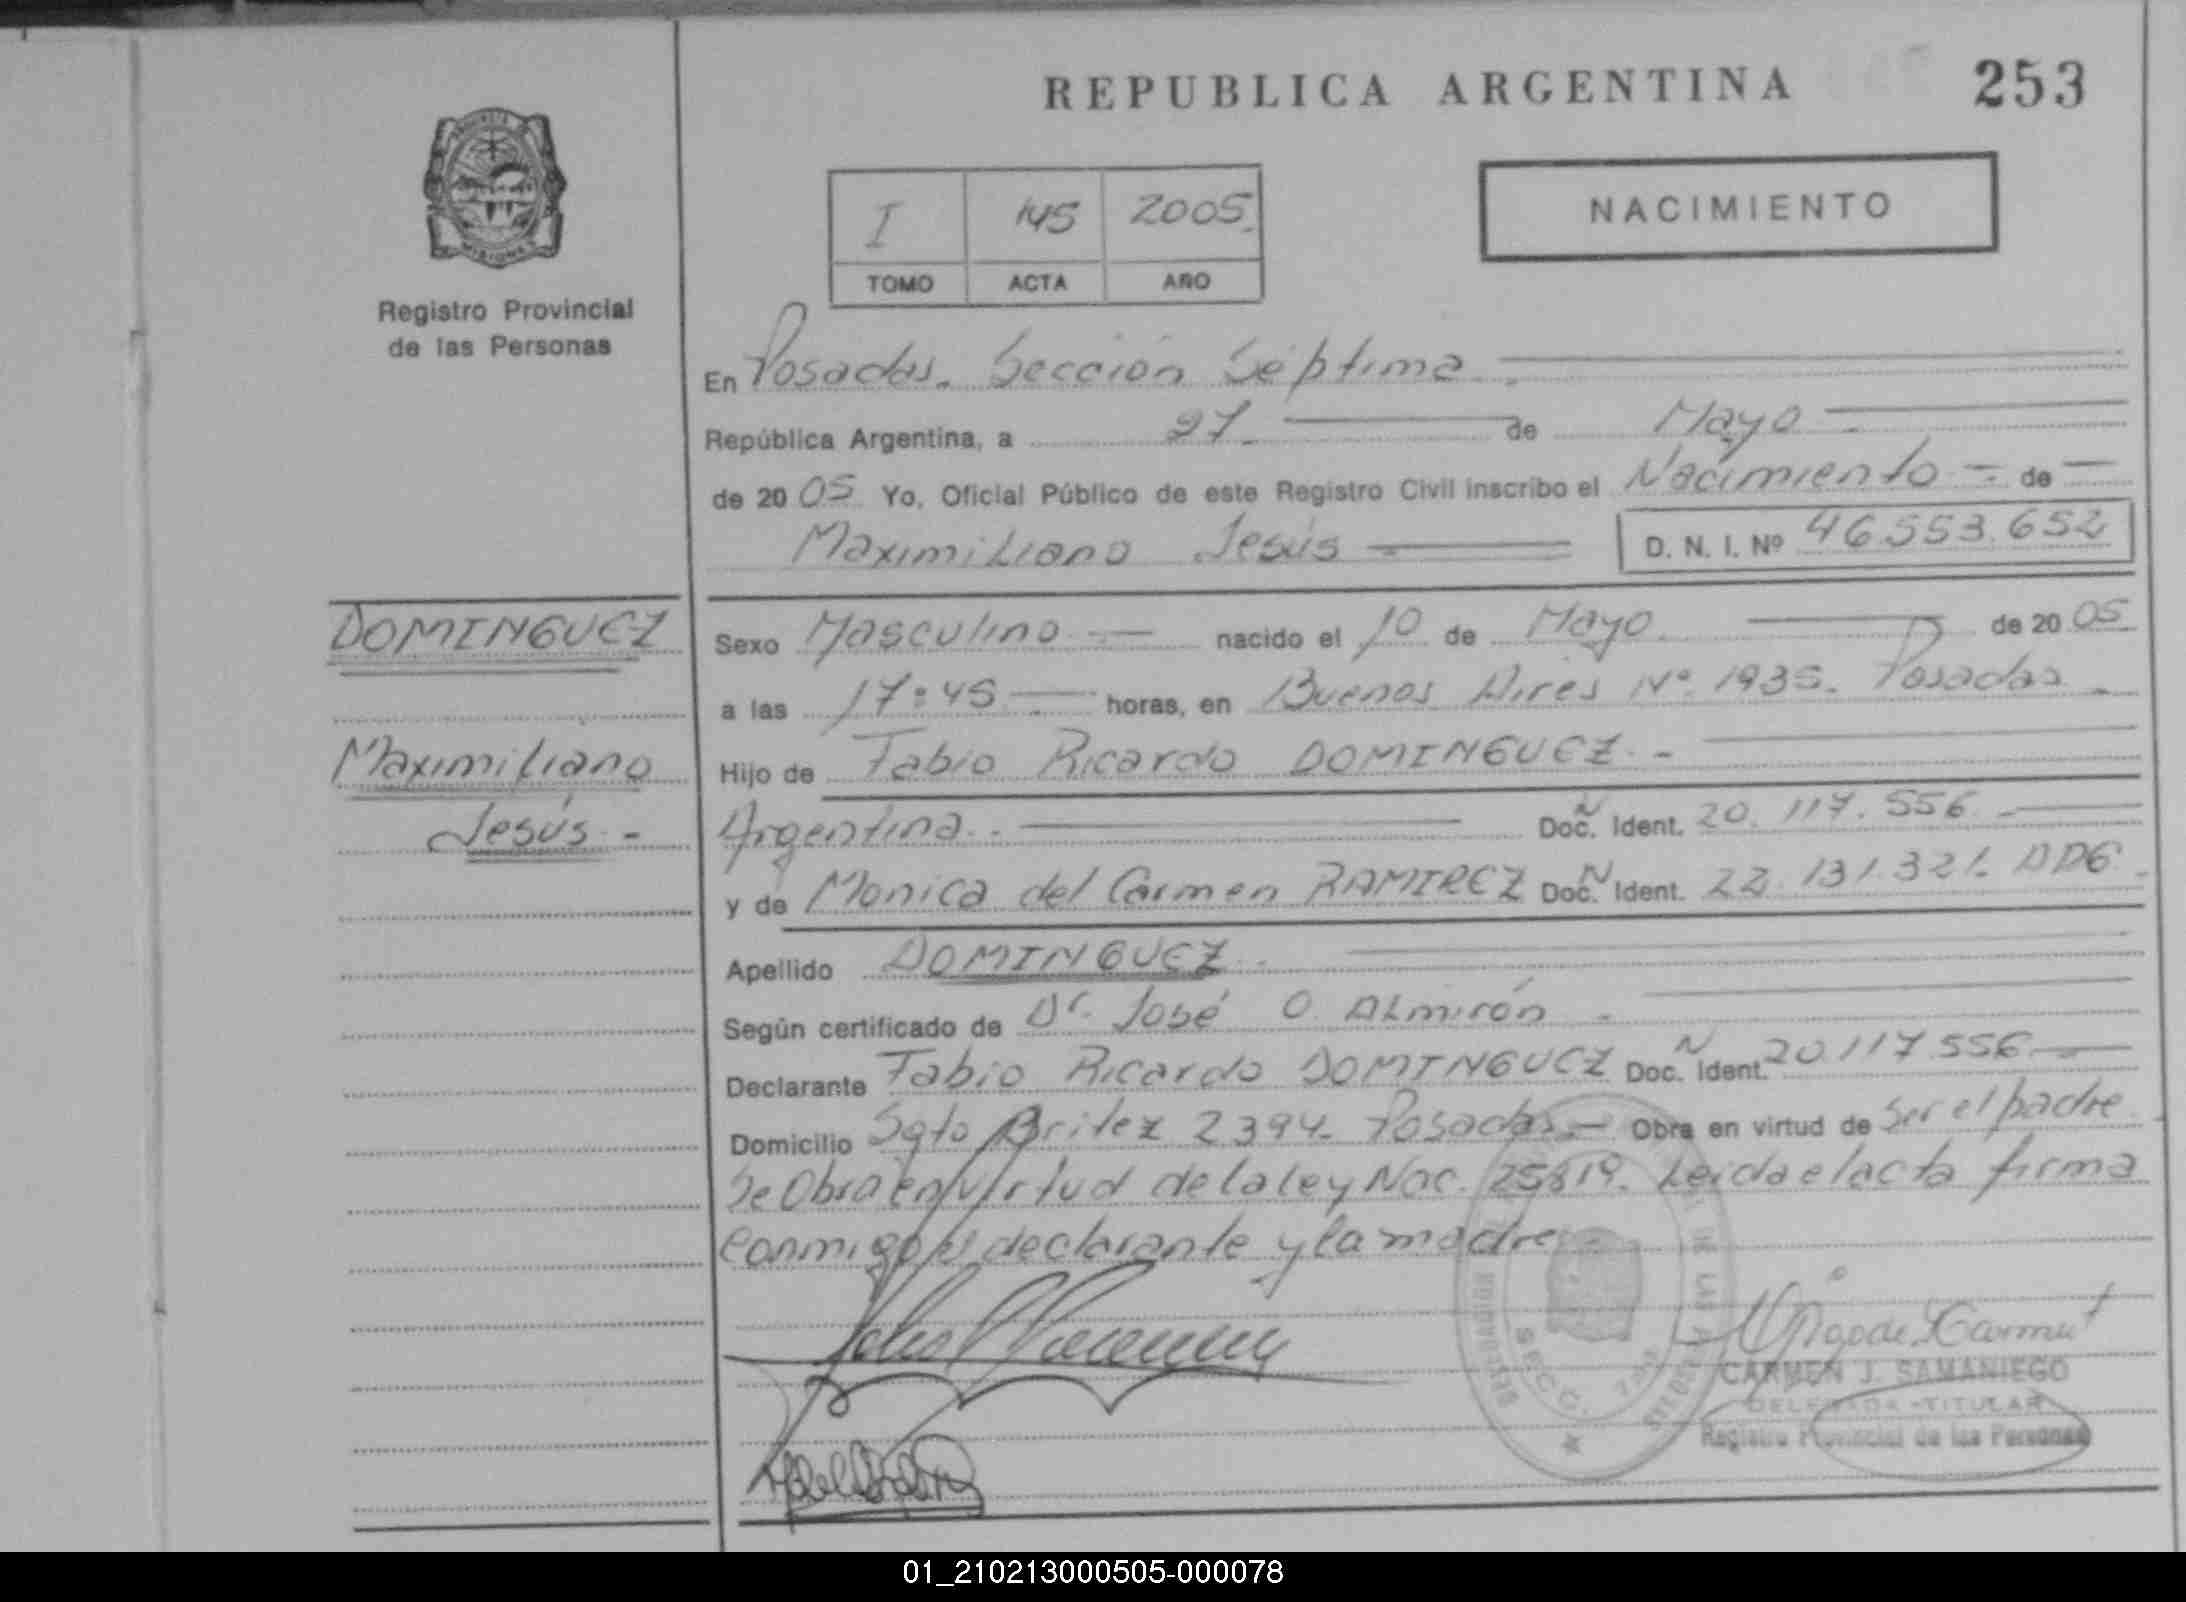 REPUBLICA ARGENTINA 253
NACIMIENTO
I 145 2005.
TOMO ACTA AÑO
MISIONES
Registro Provincial
de las Personas
En Posadas. Sección Séptima.
República Argentina, a 27. de Mayo
de 20 05 Yo, Oficial Público de este Registro Civil inscribo el Nacimiento - de
Maximiliano Jesús D. N. I. Nº 46.553.652
DOMINGUEZ
Maximiliano
Jesús.-
Sexo Masculino nacido el 10 de Mayo de 20 05
a las 17:45 horas, en Buenos Aires Nº 1935. Posadas.
Hijo de Fabio Ricardo DOMINGUEZ.-
Argentina. Doc. N Ident. 20.117.556.
y de Monica del Carmen RAMIREZ Doc. N Ident. 22.131.321.
Apellido DOMINGUEZ.
Según certificado de Dr. José O. Almirón
Declarante Fabio Ricardo DOMINGUEZ Doc. N Ident. 20.117.556
Domicilio Sgto Britez 2394. Posadas.- Obra en virtud de Ser el padre
Se Obra en virtud de la ley Nac. 25819. Leida el acta firma
conmigo el declarante y la madre.-
SECC. 7ma
CARMEN J. SAMANIEGO
DELEGADA - TITULAR
Registro Provincial de las Personas
01_210213000505-000078